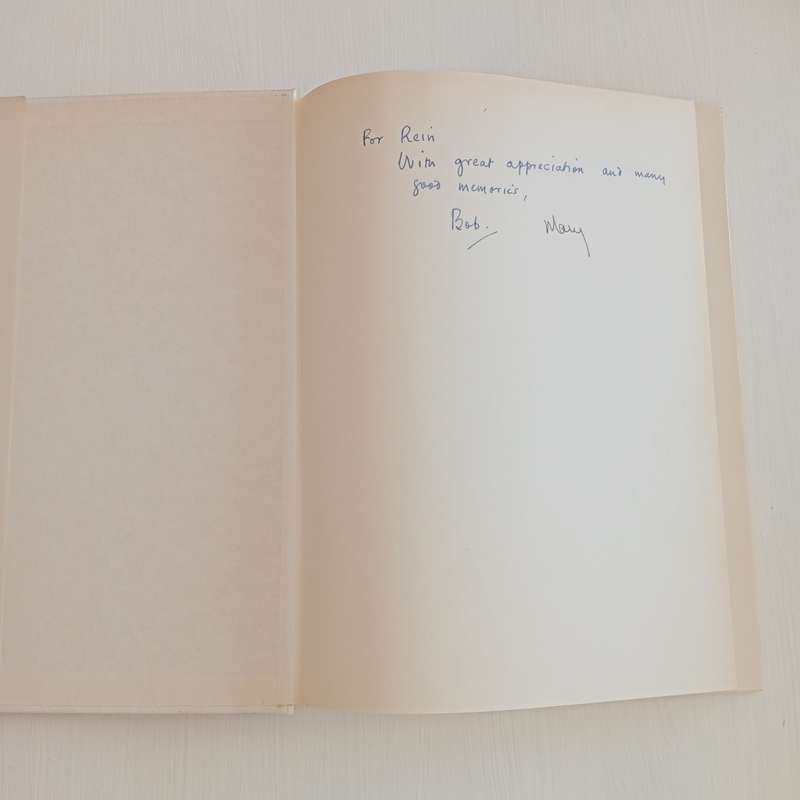 For Rein
With great appreciation and many
good memories,
Bob. Mary